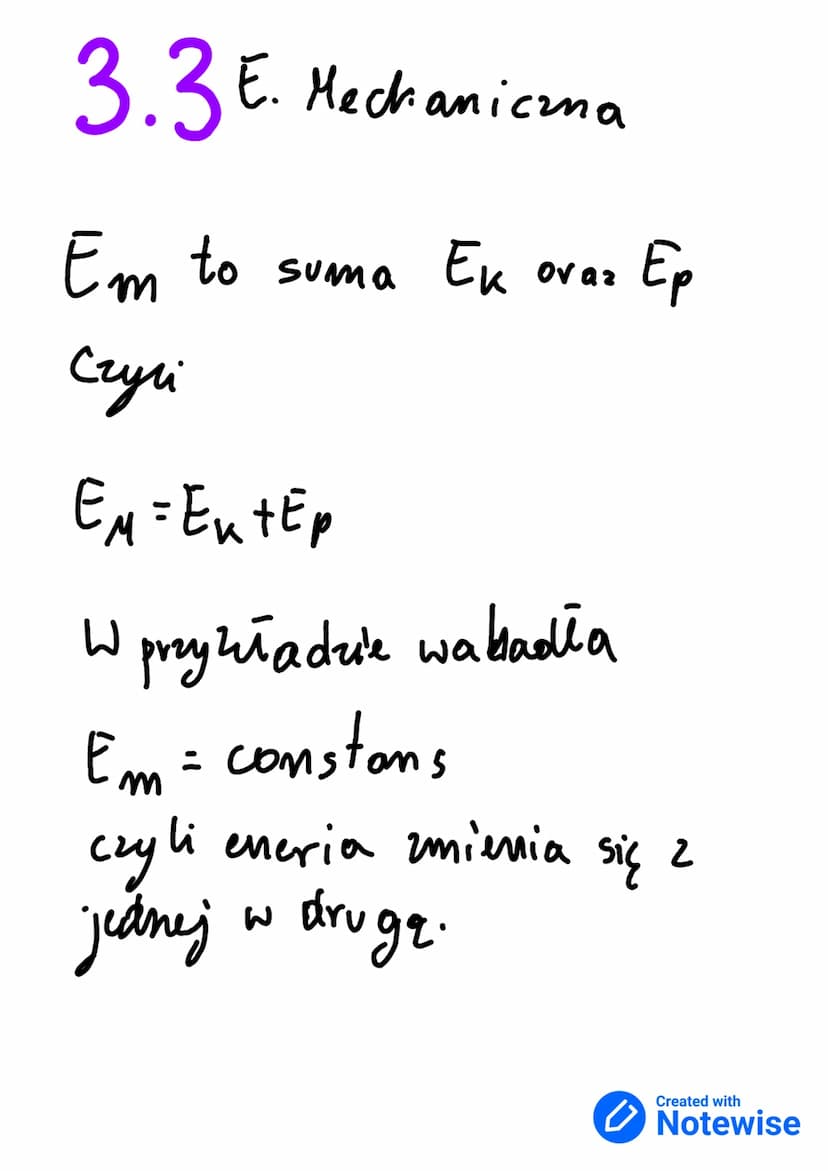 3.3 E. Mechaniczna
Em to suma Ek oraz Ep
Czyli
EM = Ek + Ep
W przykładzie wahadła
Em = constans
czyli eneria zmienia się z
jednej w drugą.
Created with
Notewise